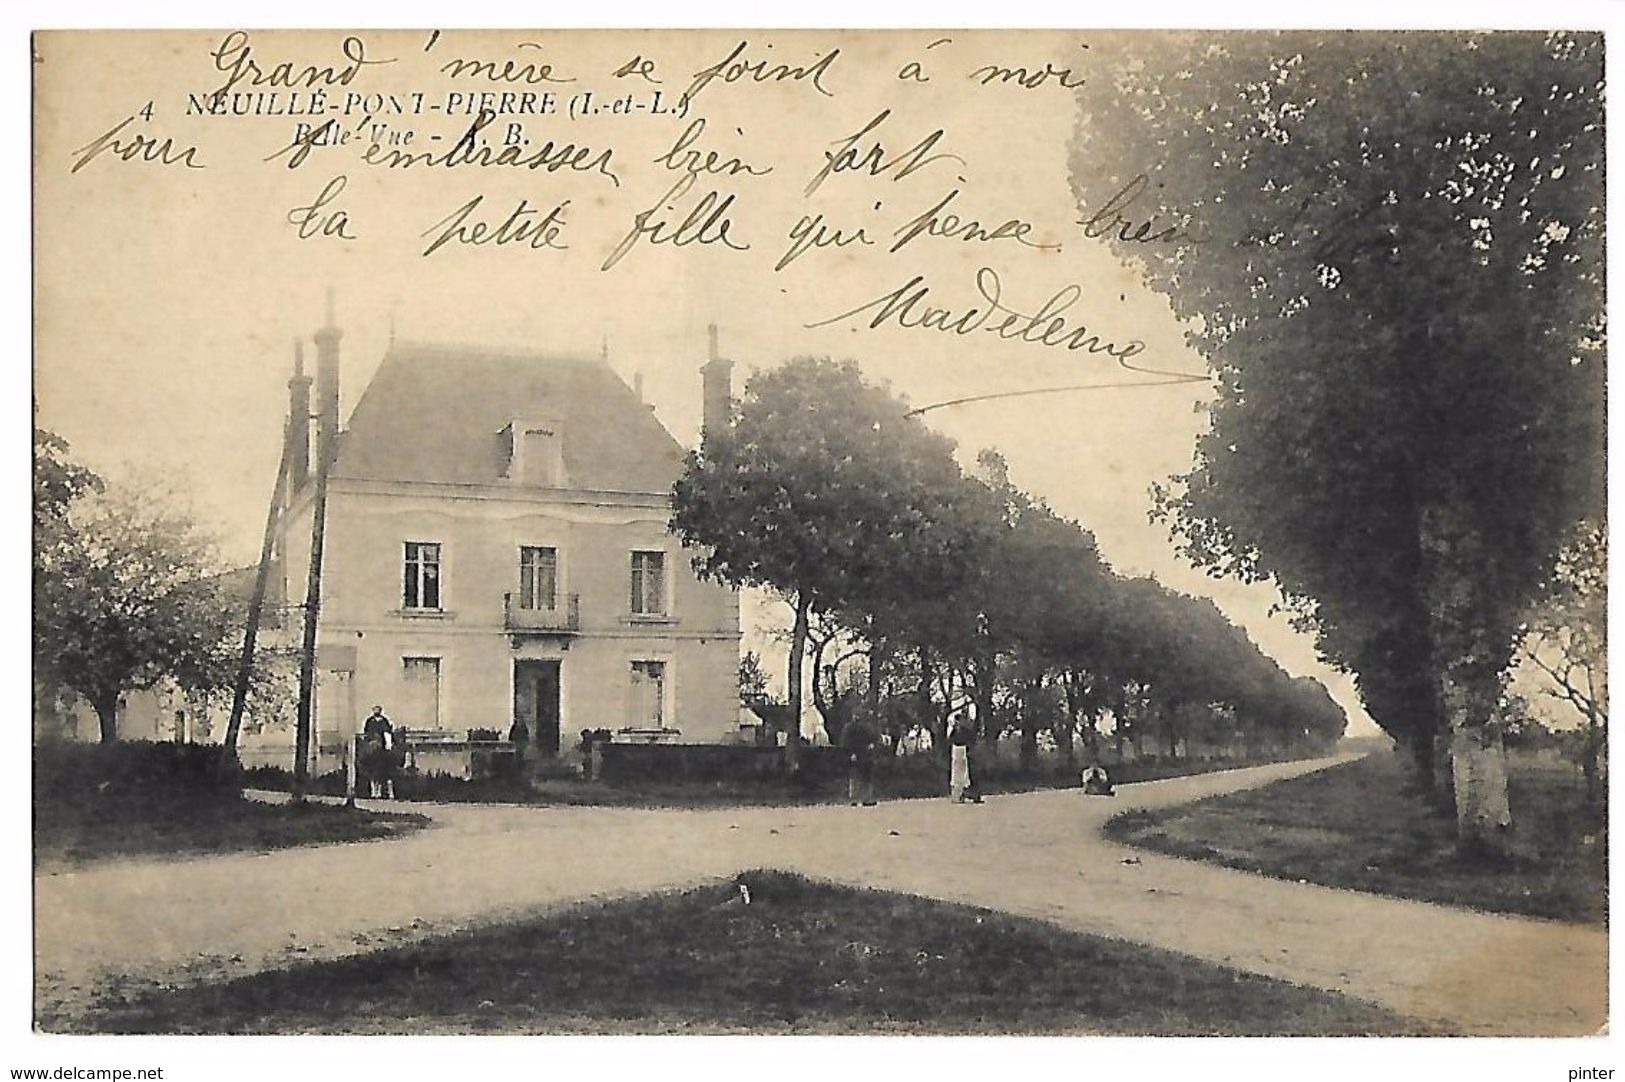 Grand'mère se joint à moi
4 NEUILLÉ-PONT-PIERRE (I.-et-L.)
Belle-Vue - R. B.
pour t'embrasser bien fort.
ta petite fille qui pense bien
Madeleine
www.delcampe.net
pinter